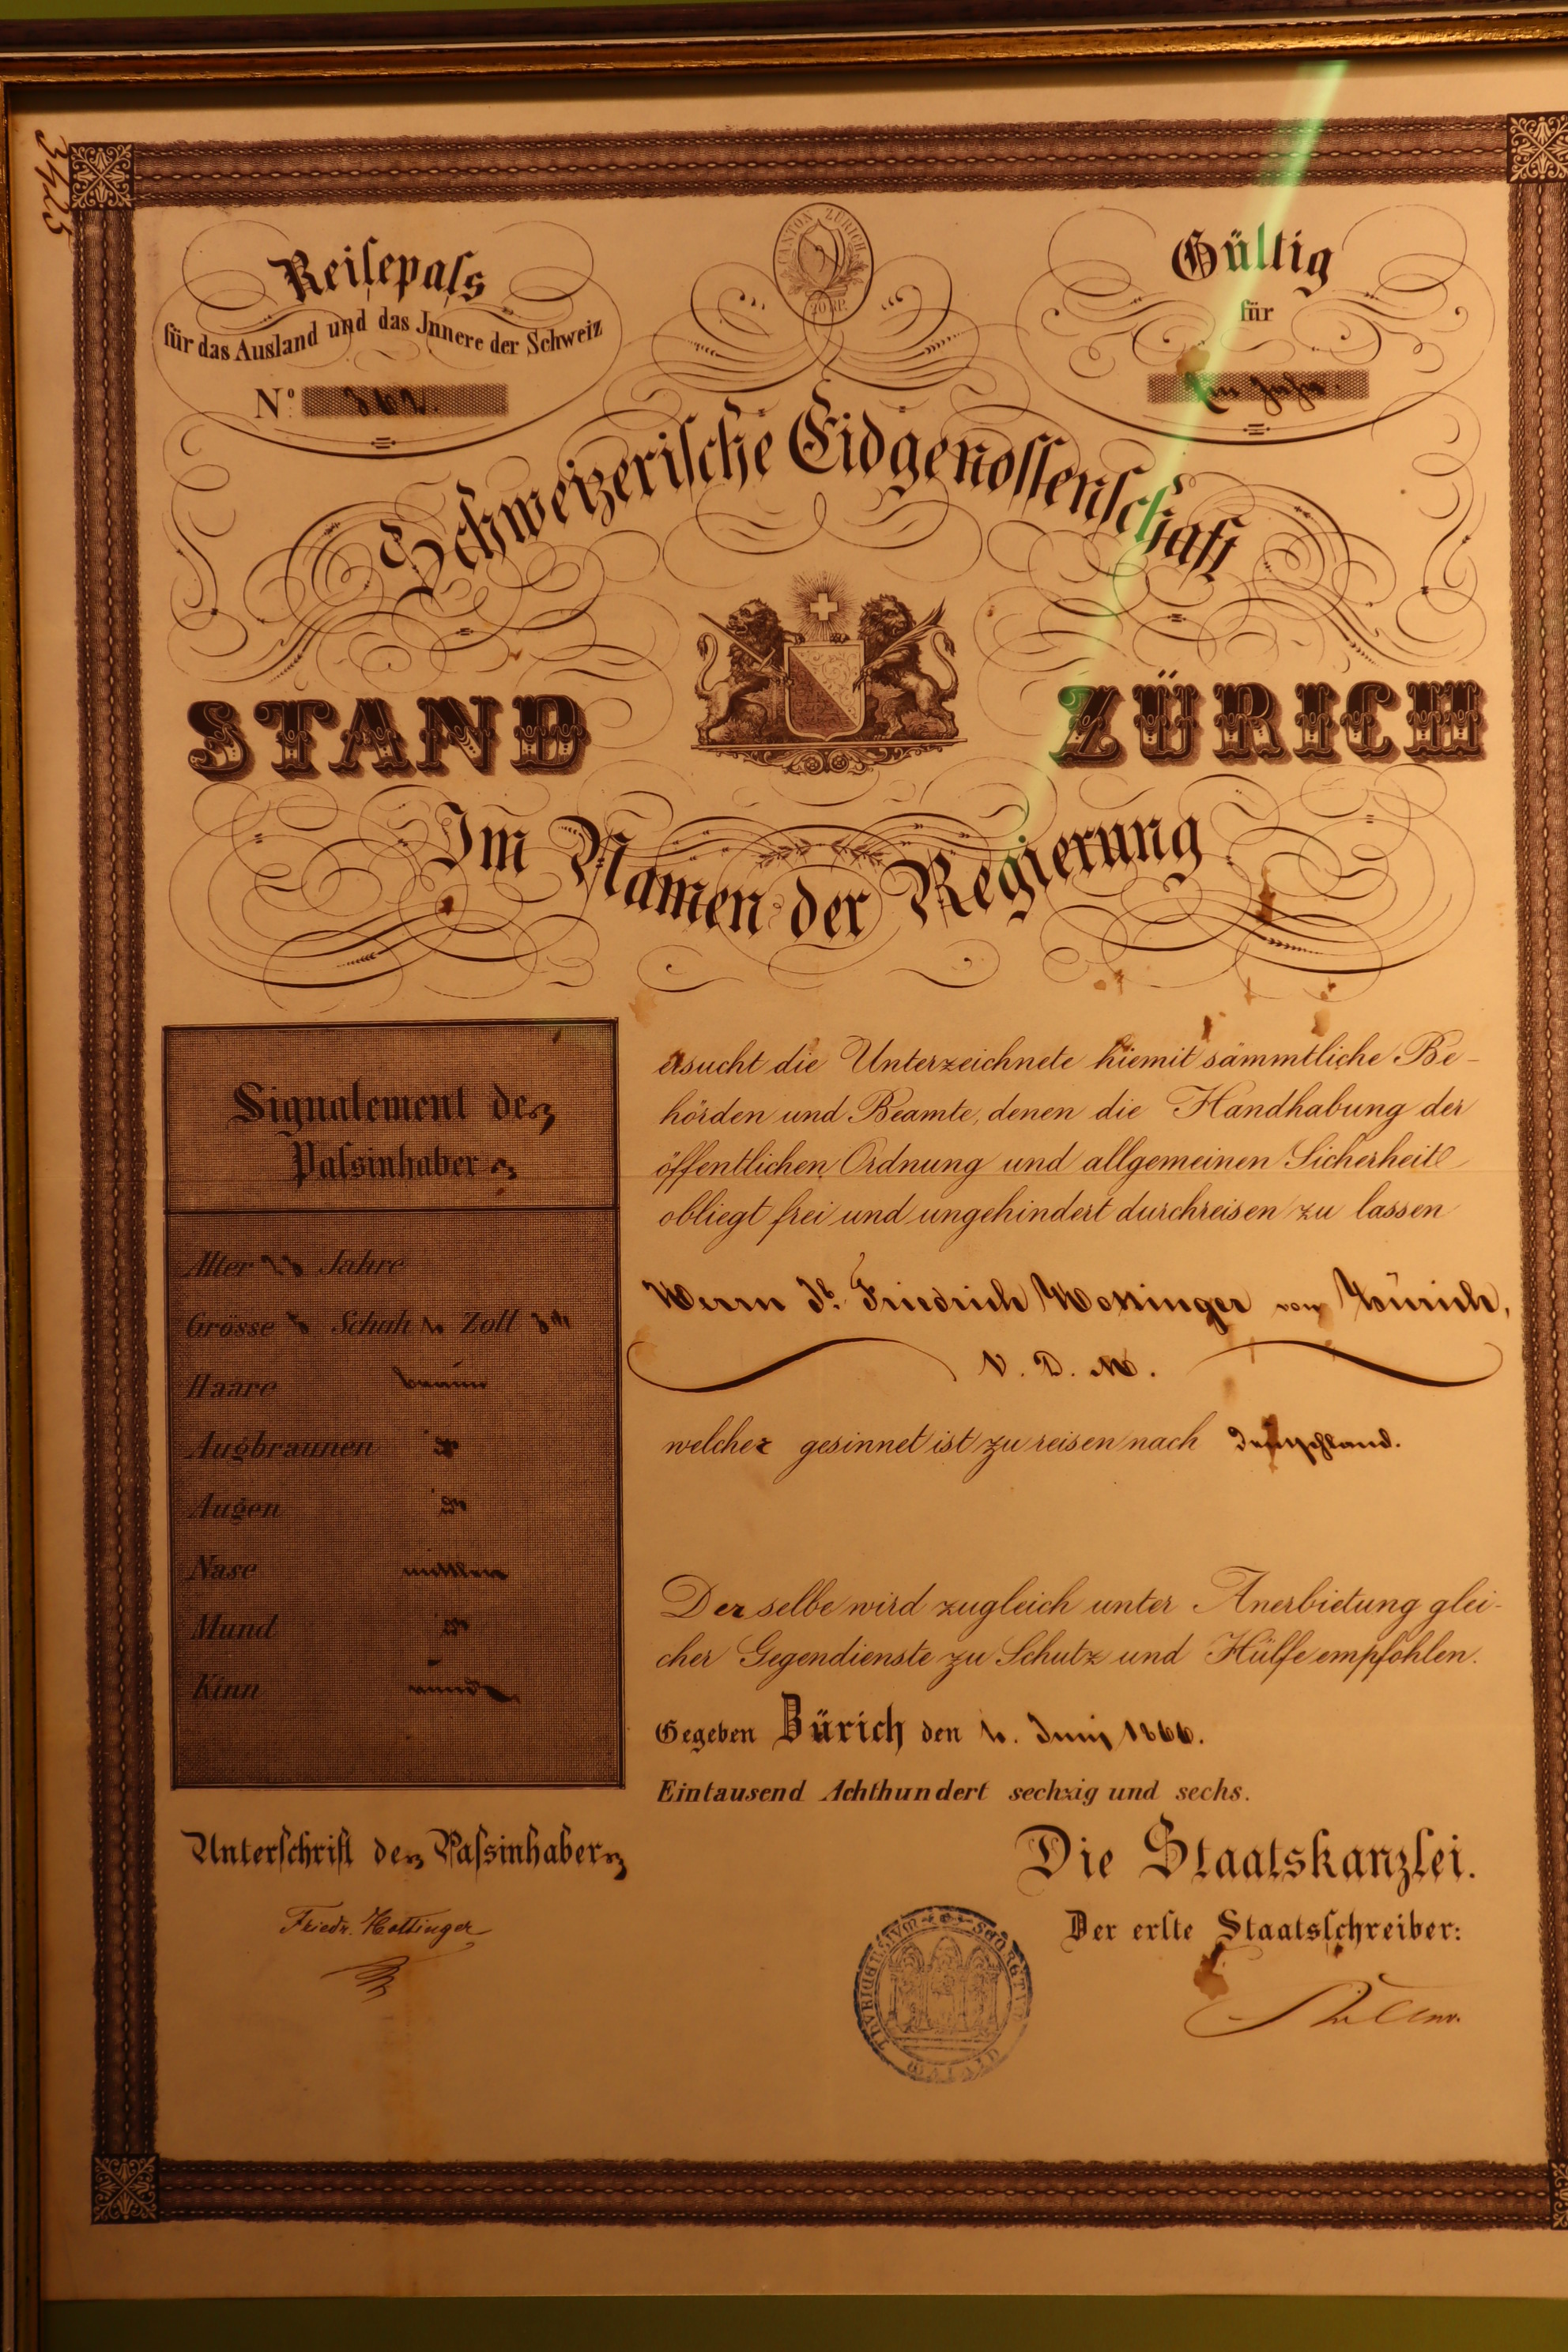 3425
Reiſepaſs
für das Ausland und das Jnnere der Schweiz
Nº 362.
CANTON ZÜRICH
20 RP.
Gültig
für
Schweizeriſche Eidgenoſſenſchaft
STAND ZÜRICH
Im Namen der Regierung
Signalement des
Paſsinhabers
Alter Jahre
Grösse 5 Schuh Zoll
Haare braun
Augbraunen do
Augen do
Nase mittlere
Mund do
Kinn rund
ersucht die Unterzeichnete hiemit sämmtliche Be-
hörden und Beamte, denen die Handhabung der
öffentlichen Ordnung und allgemeinen Sicherheit
obliegt frei und ungehindert durchreisen zu lassen
Herrn Friedrich Hottinger von Zürich,
V. D. M.
welcher gesinnet ist zu reisen nach Deutschland.
Derselbe wird zugleich unter Anerbietung glei-
cher Gegendienste zu Schutz und Hülfe empfohlen.
Gegeben Zürich den 4. Juni 1866.
Eintausend Achthundert sechzig und sechs.
Unterſchrift des Paſsinhabers
Friedr. Hottinger
Die Staatskanzlei.
Der erſte Staatsſchreiber: